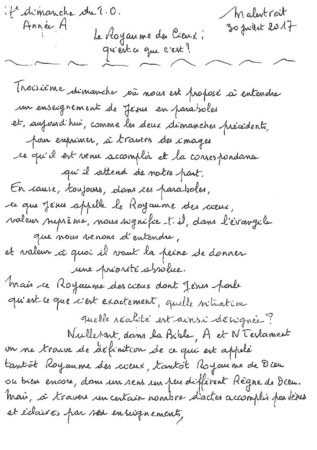 17e dimanche du T.O.
Année A
Malestroit
30 juillet 2017
Le Royaume des Cieux :
qu'est-ce que c'est ?
Troisième dimanche où nous est proposé à entendre
un enseignement de Jésus en paraboles
et, aujourd'hui, comme les deux dimanches précédents,
pour exprimer, à travers des images
ce qu'il est venu accomplir et la correspondance
qu'il attend de notre part.
En cause, toujours, dans ces paraboles,
ce que Jésus appelle le Royaume des cieux,
valeur suprême, nous signifie-t-il, dans l'évangile
que nous venons d'entendre,
et valeur à quoi il vaut la peine de donner
une priorité absolue.
Mais ce Royaume des cieux dont Jésus parle
qu'est-ce que c'est exactement, quelle situation
quelle réalité est ainsi désignée ?
Nulle part, dans la Bible, A et N Testament
on ne trouve de définition de ce qui est appelé
tantôt Royaume des cieux, tantôt Royaume de Dieu
ou bien encore, dans un sens un peu différent Règne de Dieu.
Mais, à travers un certain nombre d'actes accomplis par Jésus
et éclairés par ses enseignements,